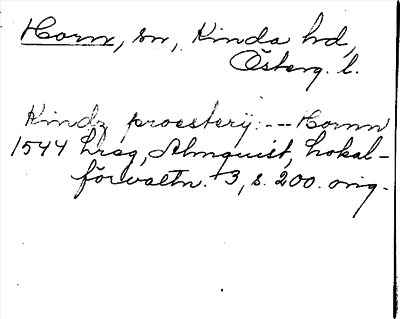 Horn, sn, Kinda hd,
Österg. l.
Kindz proesterij: -- Hornn
1544 hrsg, Almquist, Lokal-
förvaltn. 3, s. 200. orig.